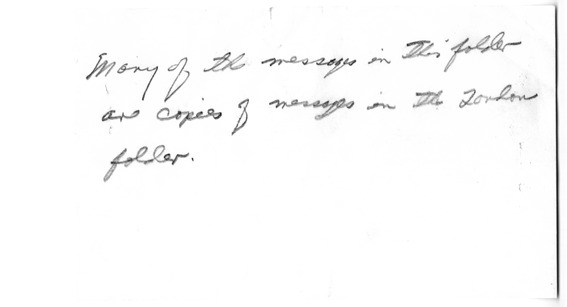 Many of the messages in this folder
are copies of messages in the London
folder.